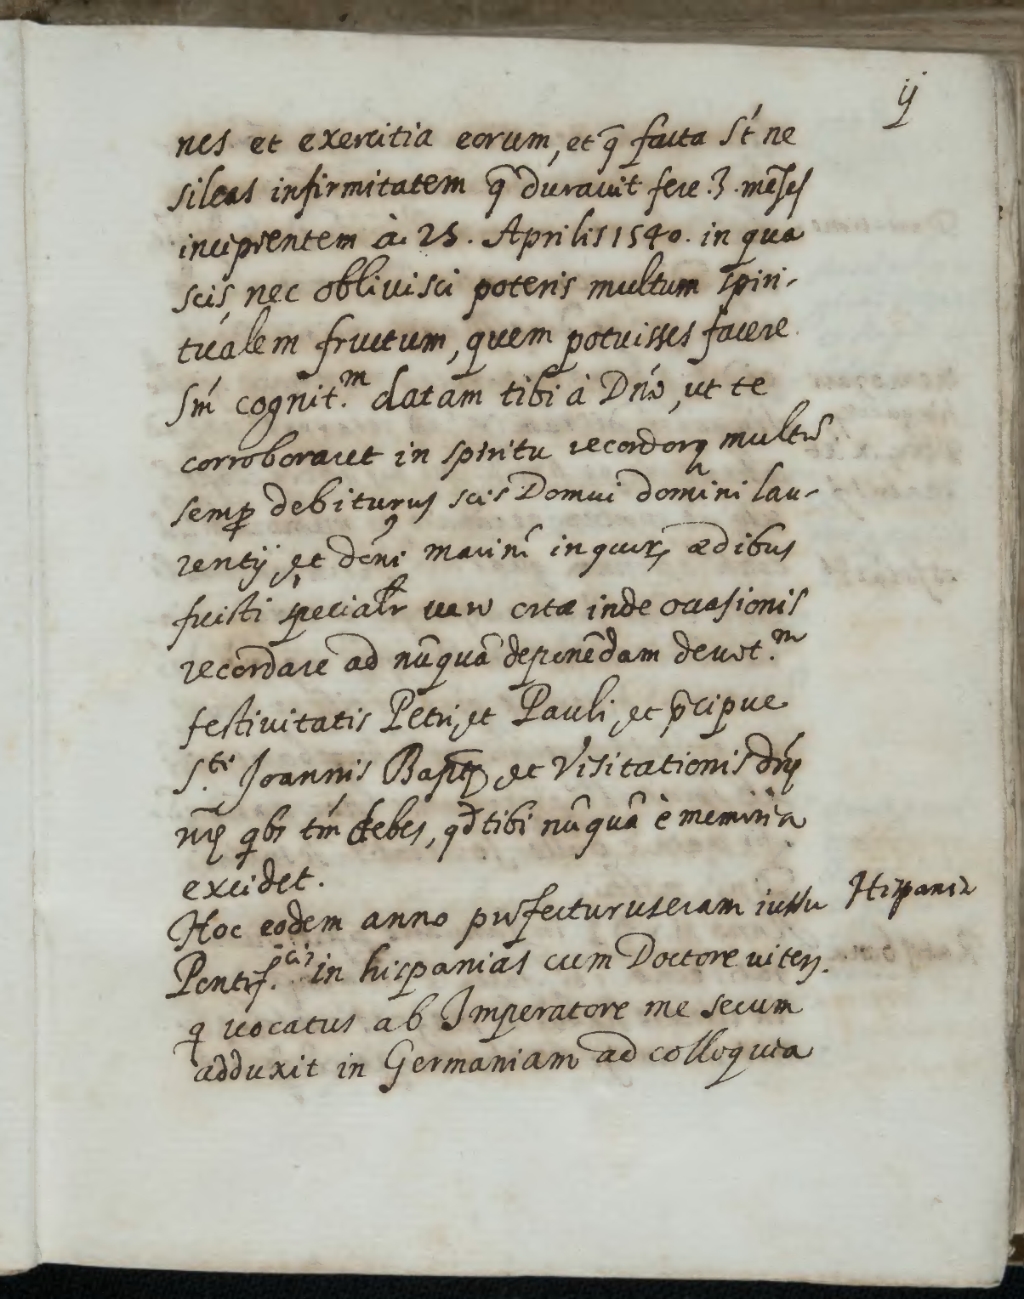 ij
nes et exercitia eorum, et q̃ facta St́ ne
sileas infirmitatem q̃ durauit fere .3. mẽses
incipientem à 25. Aprilis 1540. in qua
scis, nec obliuisci poteris multum spiri-
tualem fructum, quem potuisses facere
Sm̃ cognit.ᵐ datam tibi à Dño, ut te
corroboraret in spiritu recordorq̃ multũ
semꝑ debiturus scis Domui domini lau-
rentij, et dõni marini in quorũ ædibus
fuisti specialr̃ uero ortæ inde occasionis
recordare ad nũquã deponẽdam deuot.ᵐ
festiuitatis Petri, et Pauli, et p̃cipue
S.ᵗⁱ Joannis Bapt̃æ, et Visitationis dñæ
nr̃æ qb̃s tm̃ debes, qd̃ tibi nũquã è memoria
excidet.
Hoc eodem anno profecturus eram iussu Hispania
Pontif.ᶜⁱˢ in hispanias cum Doctore
q̃ uocatus ab Imperatore me secum
adduxit in Germaniam ad colloquia